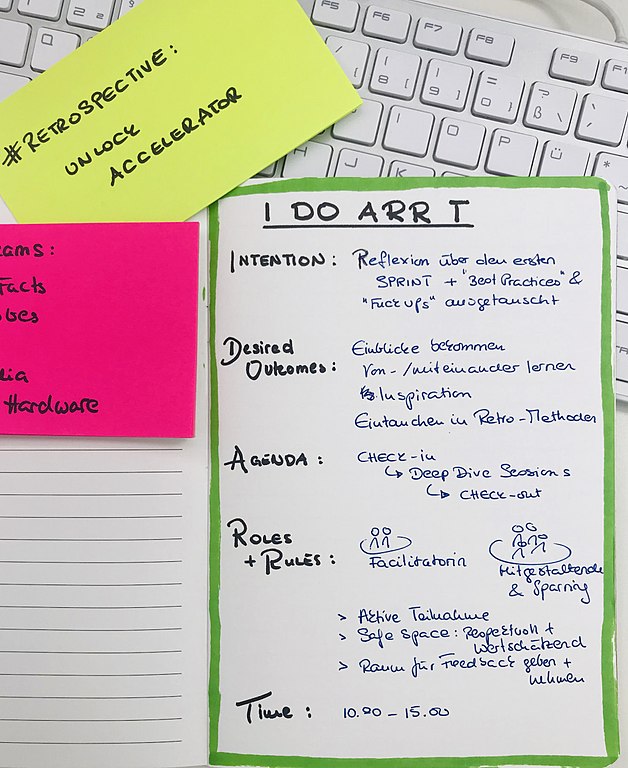 #RETROSPECTIVE:
UNLOCK
ACCELERATOR
ams:
Facts
bes
dia
Hardware
I DO ARR T
INTENTION: Reflexion über den ersten
SPRINT + "Best Practices" &
"Fuck ups" ausgetauscht
Desired
Outcomes:
Einblicke bekommen
Von-/miteinander lernen
Inspiration
Eintauchen in Retro-Methoden
AGENDA: CHECK-in
↳ Deep Dive Sessions
↳ CHECK-out
ROLES
+ RULES:
Facilitatorin
Mitgestaltende
& Sparring
> Aktive Teilnahme
> Safe Space: Respektvoll +
wertschätzend
> Raum für Feedback geben +
nehmen
Time: 10.00 - 15.00
F5
F6
F7
F8
F9
F1
Q
( 8 [
) 9 ]
= 0 }
? ß \
I
O
P
Ü
* 
H
J
K